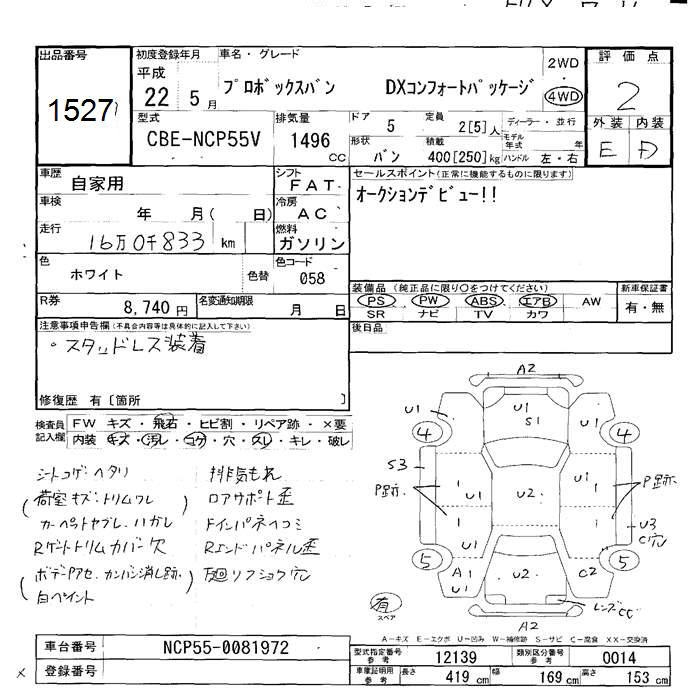 出品番号
1527
初度登録年月
平成
22 5 月
車名・グレード
プロボックスバン DXコンフォートパッケージ
2WD
・
4WD
評価点
2
外装 内装
E D
型式
CBE-NCP55V
排気量
1496
CC
ドア
5
定員
2[5]人
形状
バン
積載
400[250]kg
ディーラー・並行
モデル年式 年
ハンドル 左・右
車歴
自家用
シフト
FAT
車検
年 月( 日)
冷房
AC
走行
16万0千833 km
燃料
ガソリン
色
ホワイト
色替
色コード
058
R券
8,740円
名変通知期限
月 日
セールスポイント(正常に機能するものに限ります)
オークションデビュー!!
装備品(純正品に限り○をつけてください)
PS PW ABS エアB AW
SR ナビ TV カワ
新車保証書
有・無
後日品
注意事項申告欄(不具合内容等は具体的に記入して下さい)
・スタッドレス装着
修復歴 有 [箇所 ]
検査員記入欄
FW キズ・飛石・ヒビ割・リペア跡・×要
内装・キズ・汚レ・コゲ・穴・スレ・キレ・破レ
シートコゲ・ヘタリ 排気もれ
(荷室キズ・トリムワレ) ロアサポート歪
カーペットヤブレ・ハガレ
Rゲートトリムカバー欠 Rエンドパネル歪
白ペイント
A2
U1
U1
S1
U1
4
4
S3
P跡
U1
U2
U1
P跡
U3
C穴
5
5
A1
U1
U2
C2
有
スペア
A2
A-キズ E-エクボ U-凹み W-補修跡 S-サビ C-腐食 XX-交換済
車台番号
NCP55-0081972
登録番号
型式指定番号
参考
12139
類別区分番号
参考
0014
車庫証明用
参考
長さ
419 cm
幅
169 cm
高さ
153 cm